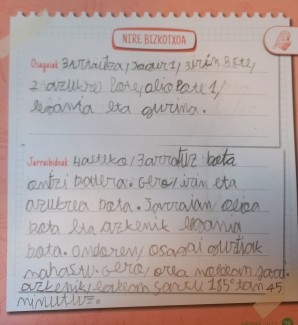 NIRE BIZKOTXOA
Osagaiak 3 arrautza, jogurt 1, 3 irin pote,
2 azukre pote, olio pote 1,
legamia eta gurina.
Jarraibideak Hasteko, 3 arrautz bota
ontzi batera. Gero, irin eta
azukrea bota. Jarraian olioa
bota eta azkenik legamia
bota. Ondoren, osagai guztiak
nahastu. Gero, orea moldean jarri.
azkenik, labean sartu 185° tan 45
minutuz.